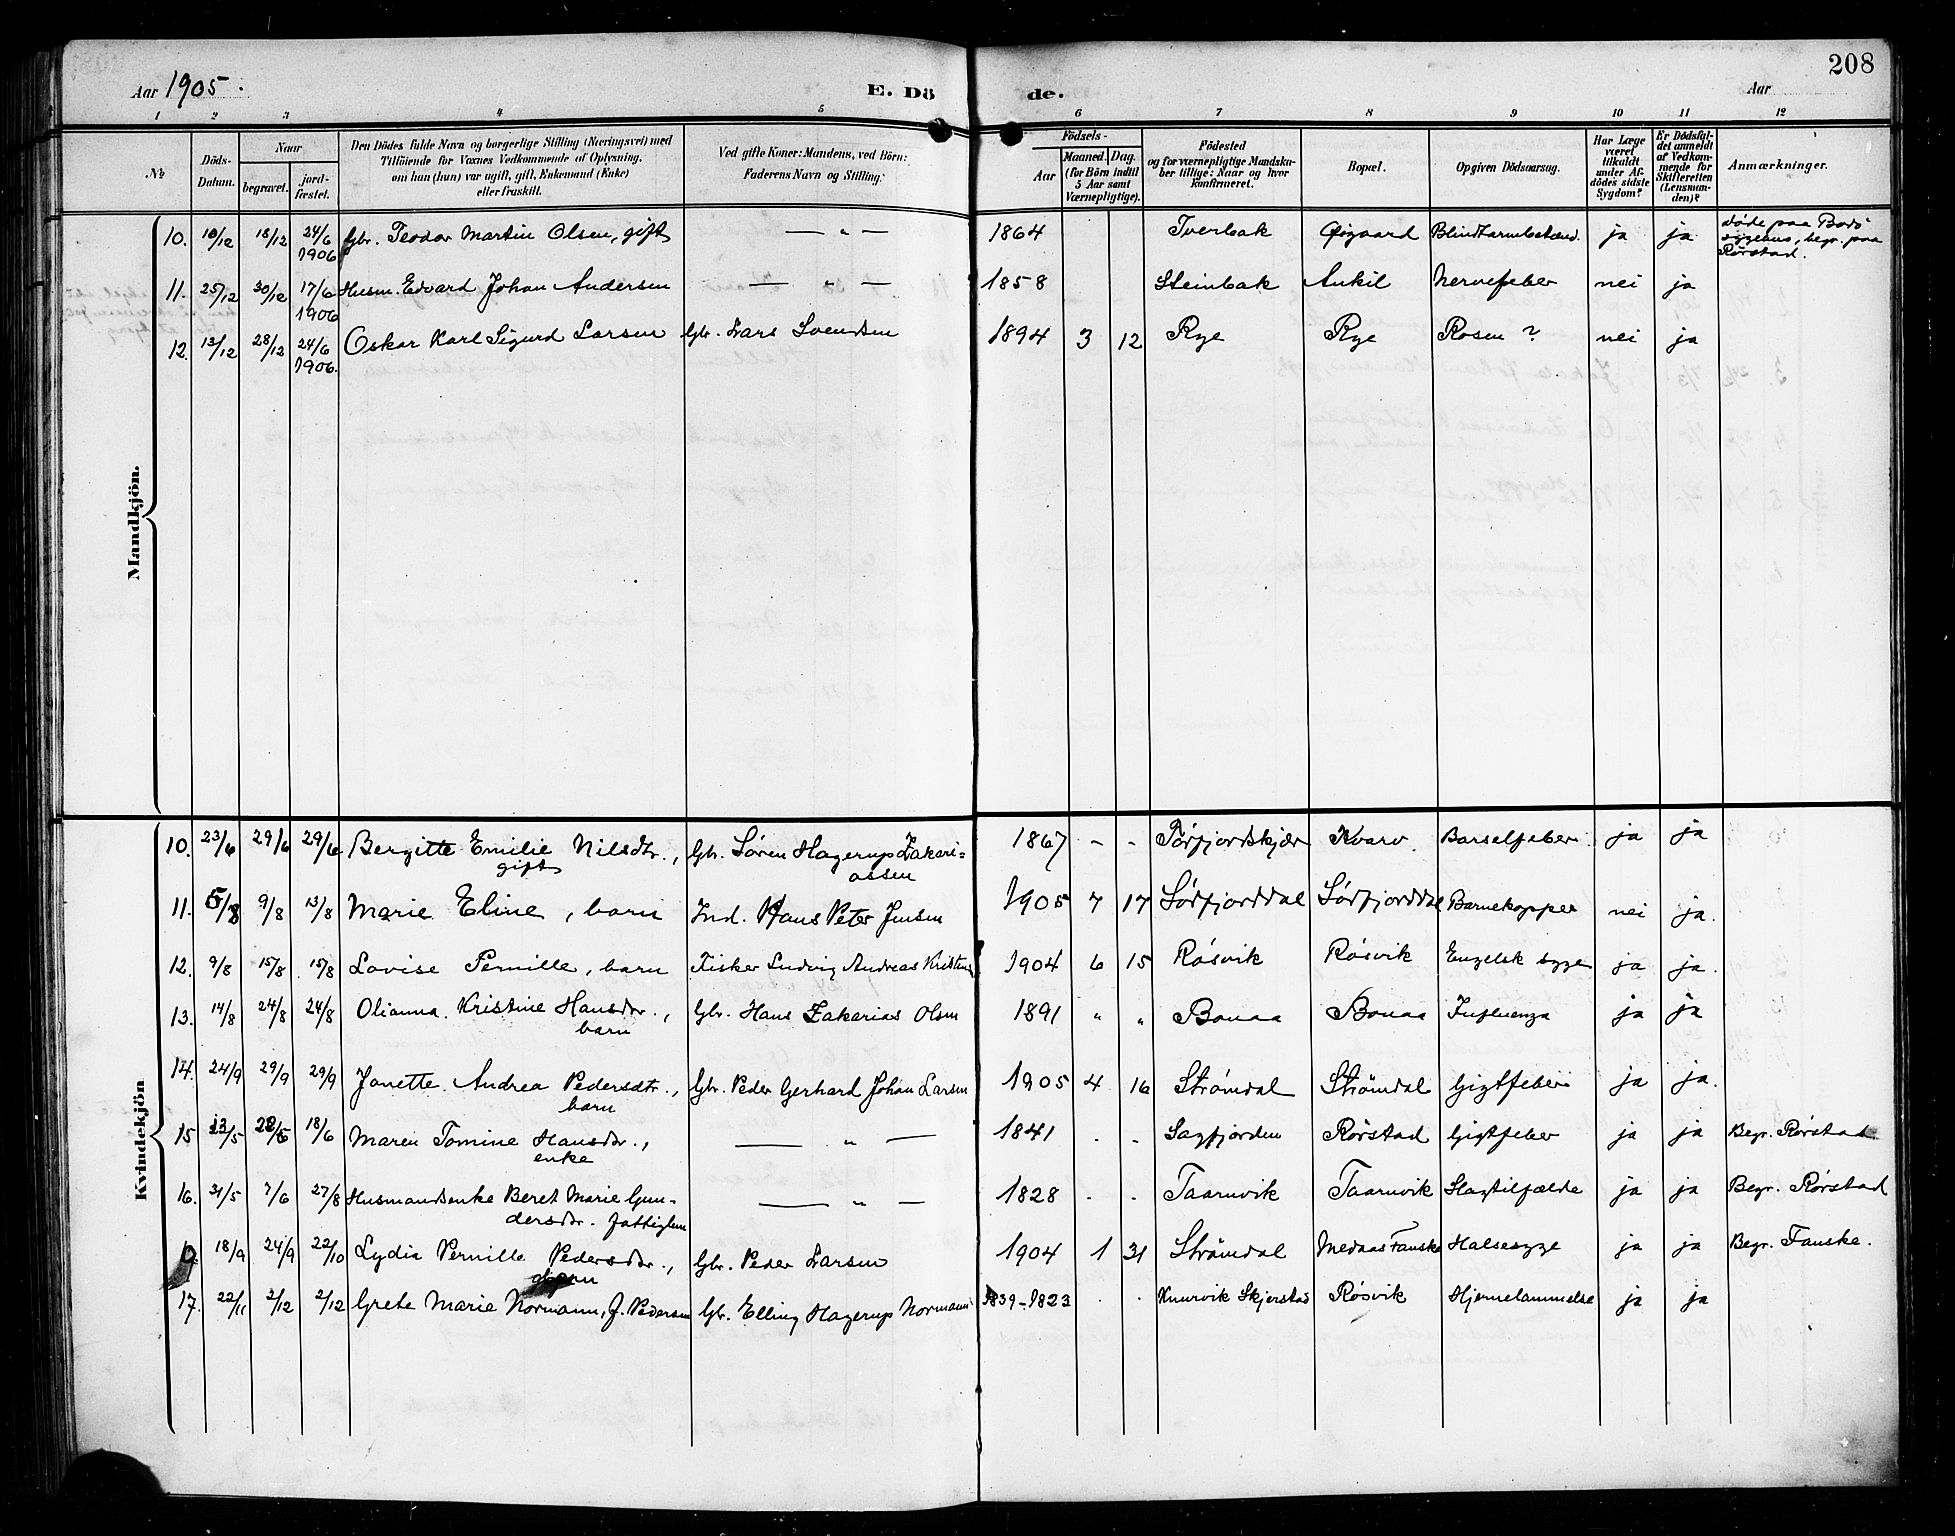 208
Aar 1905.
E. Dö de.
Aar
1 2 3 4 5 6 7 8 9 10 11 12
№
Döds-Datum.
Naar
begravet.
jord-fæstet.
Den Dödes fulde Navn og borgerlige Stilling (Næringsvei) med
Tilföiende for Voxnes Vedkommende af Oplysning,
om han (hun) var ugift, gift, Enkemand (Enke)
eller fraskilt.
Ved gifte Koner: Mandens, ved Börn:
Faderens Navn og Stilling.
Födsels-
Aar
Maaned. Dag.
(for Börn indtil
5 Aar samt
Værnepligtige).
Födested
og for værnepligtige Mandska-
ber tillige: Naar og hvor
konfirmeret.
Bopæl.
Opgiven Dödsaarsag.
Har Læge
været
tilkaldt
under Af-
dödes sidste
Sygdom?
Er Dödsfal-
det anmeldt
af Vedkom-
mende for
Skifteretten
(Lensman-
den)?
Anmærkninger.
Mandkjön.
10. 10/12 18/12 24/6 1906 Gbr. Teodor Martin Olsen, gift — „ — 1864 Tverbak Øigaard Blindtarmbetænd. ja ja Døde paa Bodø
sygehus, begr. paa
Rørstad.
11. 25/12 30/12 17/6 1906 Husm. Edvard Johan Andersen — „ — 1858 Steinbak Ankil Nervefeber nei ja
12. 13/12 28/12 24/6 1906. Oskar Karl Sigurd Larsen Gbr. Lars Svendsen 1894 3 12 Rye Rye Rosen ? nei ja
Kvindekjön
10. 23/6 29/6 29/6 Bergitte Emilie Nilsdtr., Gbr. Søren Hagerup Zakari- 1867 - - Tørfjordskjær Kvarv. Barselfeber ja ja
gift assen
11. 5/8 9/8 13/8 Marie Eline, barn Ind. Hans Peter Jensen 1905 7 17 Sørfjorddal Sørfjorddal Barnekopper nei ja.
12. 9/8 15/8 15/8 Lovise Pernille, barn Fisker Ludvig Andreas Kristens 1904 6 15 Røsvik Røsvik Engelsk syge ja ja.
13. 14/8 24/8 24/8 Olianna Kristine Hansdtr., Gbr. Hans Zakarias Olsen 1891 „ „ Bonaa Bonaa Influenza ja ja
barn
14. 24/9 29/9 29/9 Janette Andrea Pedersdtr., Gbr. Peder Gerhard Johan Larsen 1905 4 16 Strømdal Strømdal Gigtfeber ja ja.
barn
15 13/5 28/5 18/6 Maren Tomine Hansdtr., — „ — 1841 . . Sagfjorden Rørstad Gigtfeber ja ja Begr. Rørstad
enke
16. 31/5 7/6 27/8 Husmandsenke Beret Marie Gun- — „ — 1828 . . Taarnvik Taarnvik Slagtilfælde ja ja Begr. Rørstad
dersdtr. fattiglem
18/9 24/9 22/10 Lydia Pernille Pedersdtr., Gbr. Peder Larsen 1904 1 31 Strømdal Medaas Fauske Halsesyge ja ja Begr. Fauske.
17. 22/11 2/12 2/12 Grete Marie Normann, f. Pedersen Gbr. Elling Hagerup Normann 1839-1823 . . Knurvik Skjerstad Røsvik Hjernelammelse ja ja